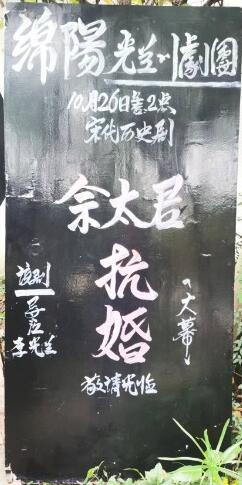 绵陽光兰川劇團
10月26日善2点
宋代历史剧
佘太君
抗婚
《大幕》
该剧
导应
李光兰
敬请光临